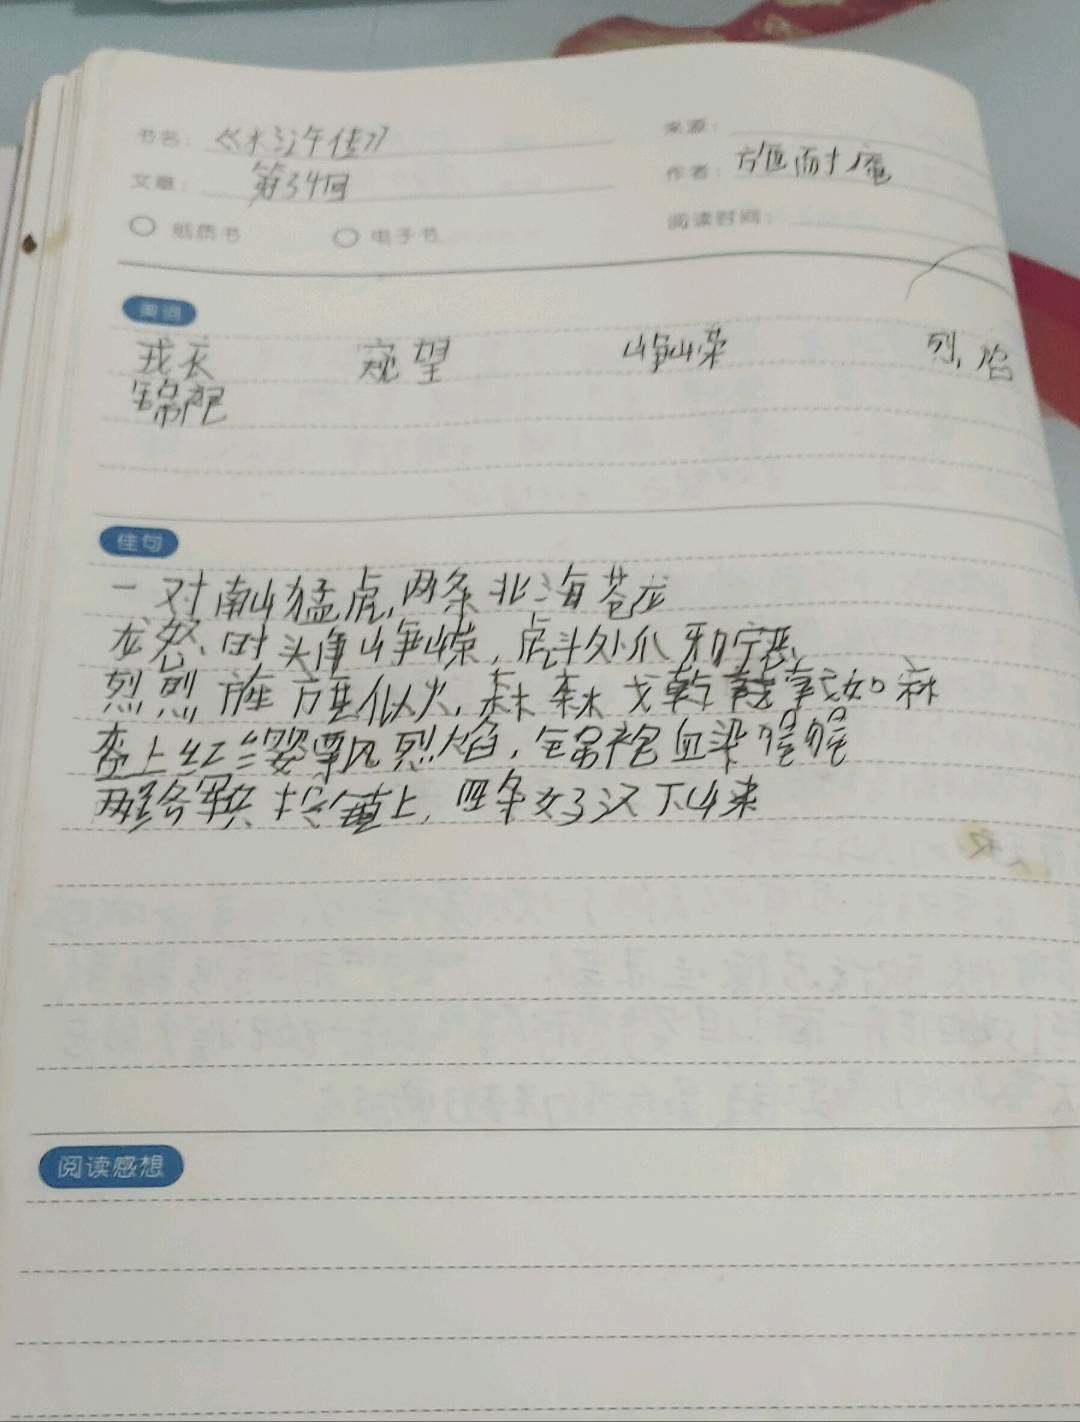 书名： 《水浒传》
来源：
文章： 第34回
作者： 施耐庵
纸质书 电子书
阅读时间：
美词
戎衣 窥望 峥嵘 烈焰
锦袍
佳句
一对南山猛虎，两条北海苍龙
龙怒时头角峥嵘，虎斗处爪牙狞恶
烈烈旌旗似火，森森戈戟如麻
上红缨飘烈焰，锦袍血染猩猩
两路军兵 镇上，四条好汉下山来
阅读感想